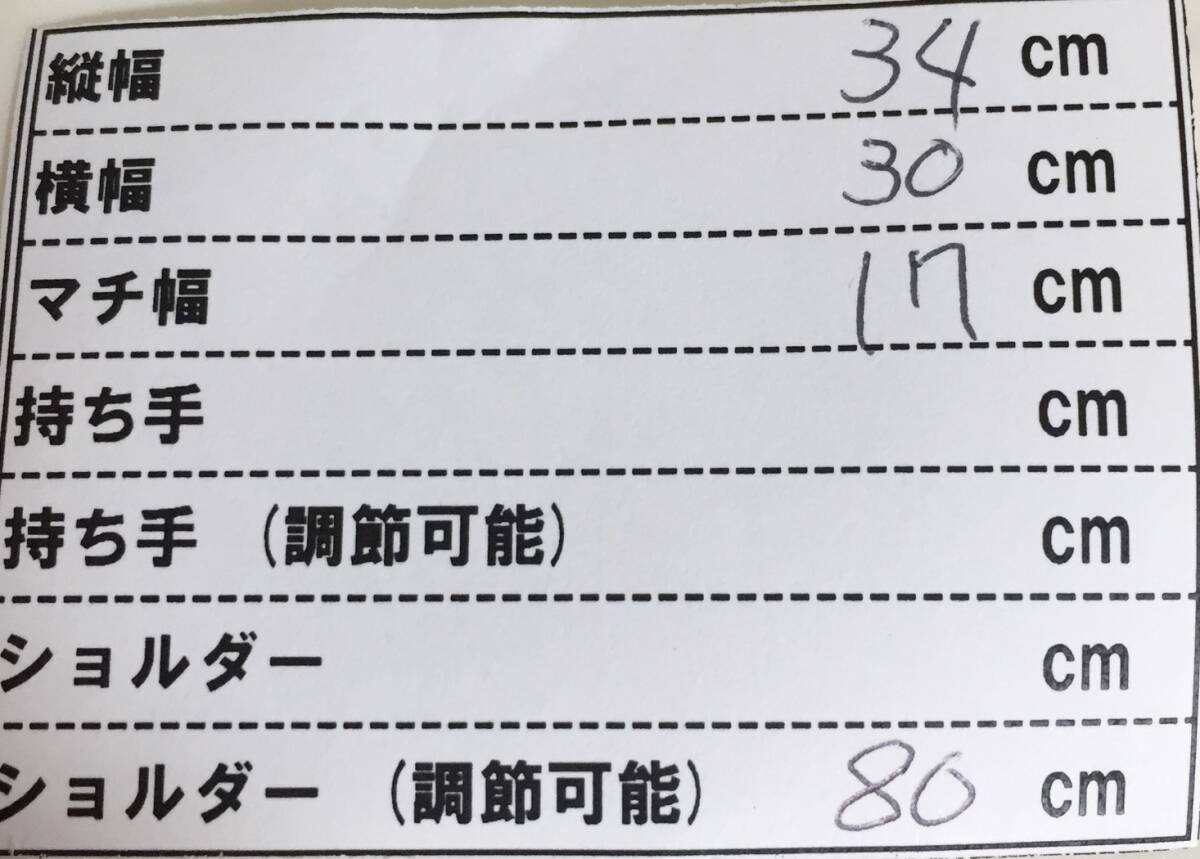 縦幅 34 cm
横幅 30 cm
マチ幅 17 cm
持ち手 cm
持ち手 (調節可能) cm
ショルダー cm
ショルダー (調節可能) 80 cm